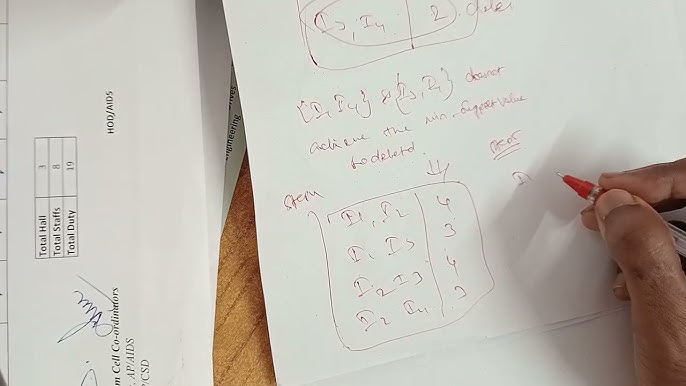 I3, I4 2
{I1, I4} & {I3, I4} doesnot
achieve the min. support value
to deleted.
I1, I2 4
I1 I3 3
I2 I3 4
I2 I4 3
I
HOD/AIDS
Total Hall 3
Total Staffs 8
Total Duty 19
Engineering
m Cell Co-ordinators
AP/AIDS
/CSD